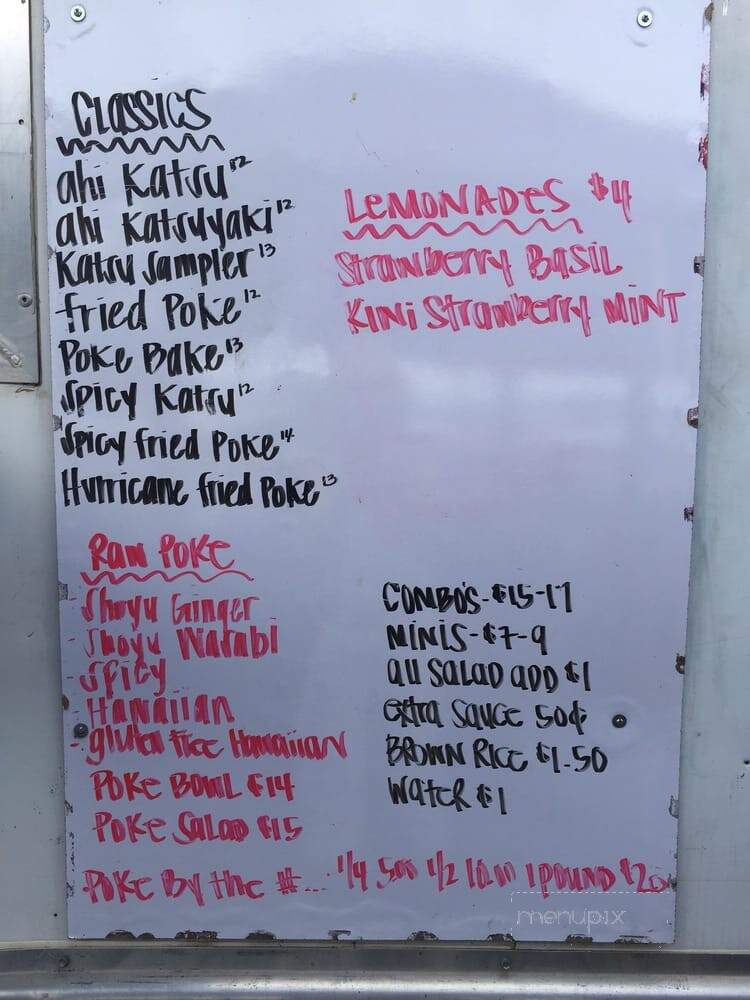 CLASSICS
ahi Katsu 12
ahi Katsuyaki 12
Katsu Sampler 13
fried Poke 12
Poke Bake 13
Spicy Katsu 12
Spicy fried Poke 14
Hurricane fried Poke 13
LEMONADES $4
Strawberry BASIL
KINI Strawberry MINT
Raw Poke
- Shoyu Ginger
- Shoyu Wasabi
- Spicy
- Hawaiian
- gluten free Hawaiian
Poke BOWL $14
Poke SALAD $15
COMBO'S - $15-17
MINIS - $7-9
all SALAD ADD $1
extra Sauce 50¢
BROWN Rice $1.50
Water $1
Poke By the #... 1/4 5.00 1/2 10.00 1 POUND $20
menupix